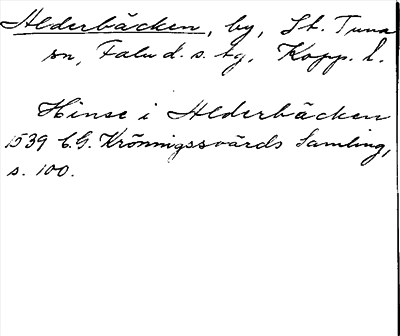 Alderbäcken, by, St. Tuna
sn, Falu d. s. tg, Kopp. l.
Hinse i Alderbäcken
1539 C.G. Krönnigssvärds Samling,
s. 100.